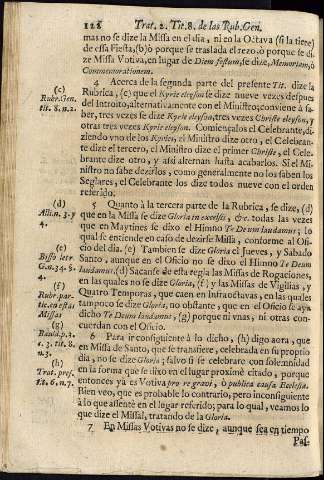 128 Trat. 2. Tit. 8. de las Rub. Gen.
mas no se dize la Missa en el dia, ni en la Octava (si la tiene)
de essa Fiesta, (b) ò porque se traslada el rezo, ò porque se di-
ze Missa Votiva, en lugar de Diem festum, se dize, Memoriam, ò
Commemorationem.
4 Acerca de la segunda parte del presente Tit. dize la
Rubrica, (c) que el Kyrie eleyson se dize nueve vezes despues
del Introito, alternativamente con el Ministro; conviene à sa-
ber, tres vezes se dize Kyrie eleyson, tres vezes Christe eleyson, y
otras tres vezes Kyrie eleyson. Comiençalos el Celebrante, di-
ziendo vno de los Kyries, el Ministro dize otro, el Celebran-
te dize el tercero, el Ministro dize el primer Christe, el Cele-
brante dize otro, y assi alternan hasta acabarlos. Si el Mi-
nistro no sabe dezirlos, como generalmente no los saben los
Seglares, el Celebrante los dize todos nueve con el orden
referido.
5 Quanto à la tercera parte de la Rubrica, se dize, (d)
que en la Missa se dize Gloria in excelsis, &c. todas las vezes
que en Maytines se dixo el Himno Te Deum laudamus; lo
qual se entiende en caso de dezirse Missa, conforme al Ofi-
cio del dia. (e) Tambien se dize Gloria el Jueves, y Sabado
Santo, aunque en el Oficio no se dixo el Himno Te Deum
laudamus. (d) Sacanse de esta regla las Missas de Rogaciones,
en las quales no se dize Gloria, (f) y las Missas de Vigilias, y
Quatro Temporas, que caen en Infraoctavas, en las quales
tampoco se dize Gloria, no obstante, que en el Oficio se aya
dicho Te Deum laudamus, (g) porque ni vnas, ni otras con-
cuerdan con el Oficio.
6 Para ir consiguiente à lo dicho, (h) digo aora, que
en Missa de Santo, que se transfiere, celebrada en su proprio
dia, no se dize Gloria; salvo si se celebrare con solemnidad
en la forma que se dixo en el lugar proximè citado, porque
entonces ya es Votiva pro re gravi, ò publica causa Ecclesiæ.
Bien veo, que es probable lo contrario, pero inconsiguiente
à lo que assenté en el lugar referido; para lo qual, veamos lo
que dize el Missal, tratando de la Gloria.
7 En Missas Votivas no se dize, aunque sea en tiempo
Pas-
(c)
Rubr. Gen.
tit. 8. n. 2.
(d)
n. 3. y
4.
(e)
G. n. 34. 8.
n. 4.
(f)
Missas
(g)
n. 3.
(h)
Trat. pres.
tit. 6. n. 7.